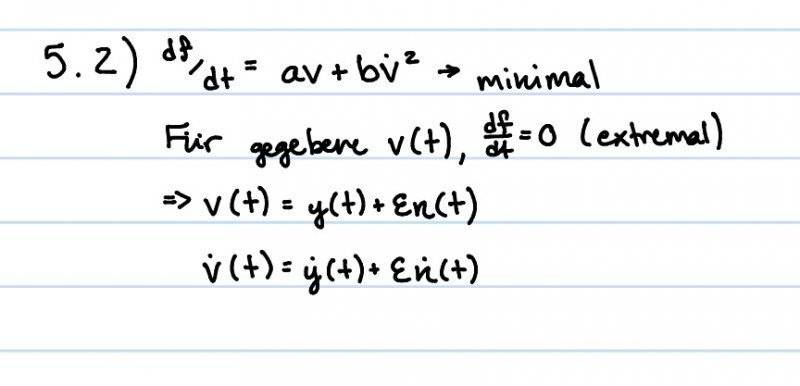 5.2) df/dt = av + bv̇² → minimal
Für gegebene v(t), df/dt = 0 (extremal)
=> v(t) = y(t) + εn(t)
v̇(t) = ẏ(t) + εṅ(t)